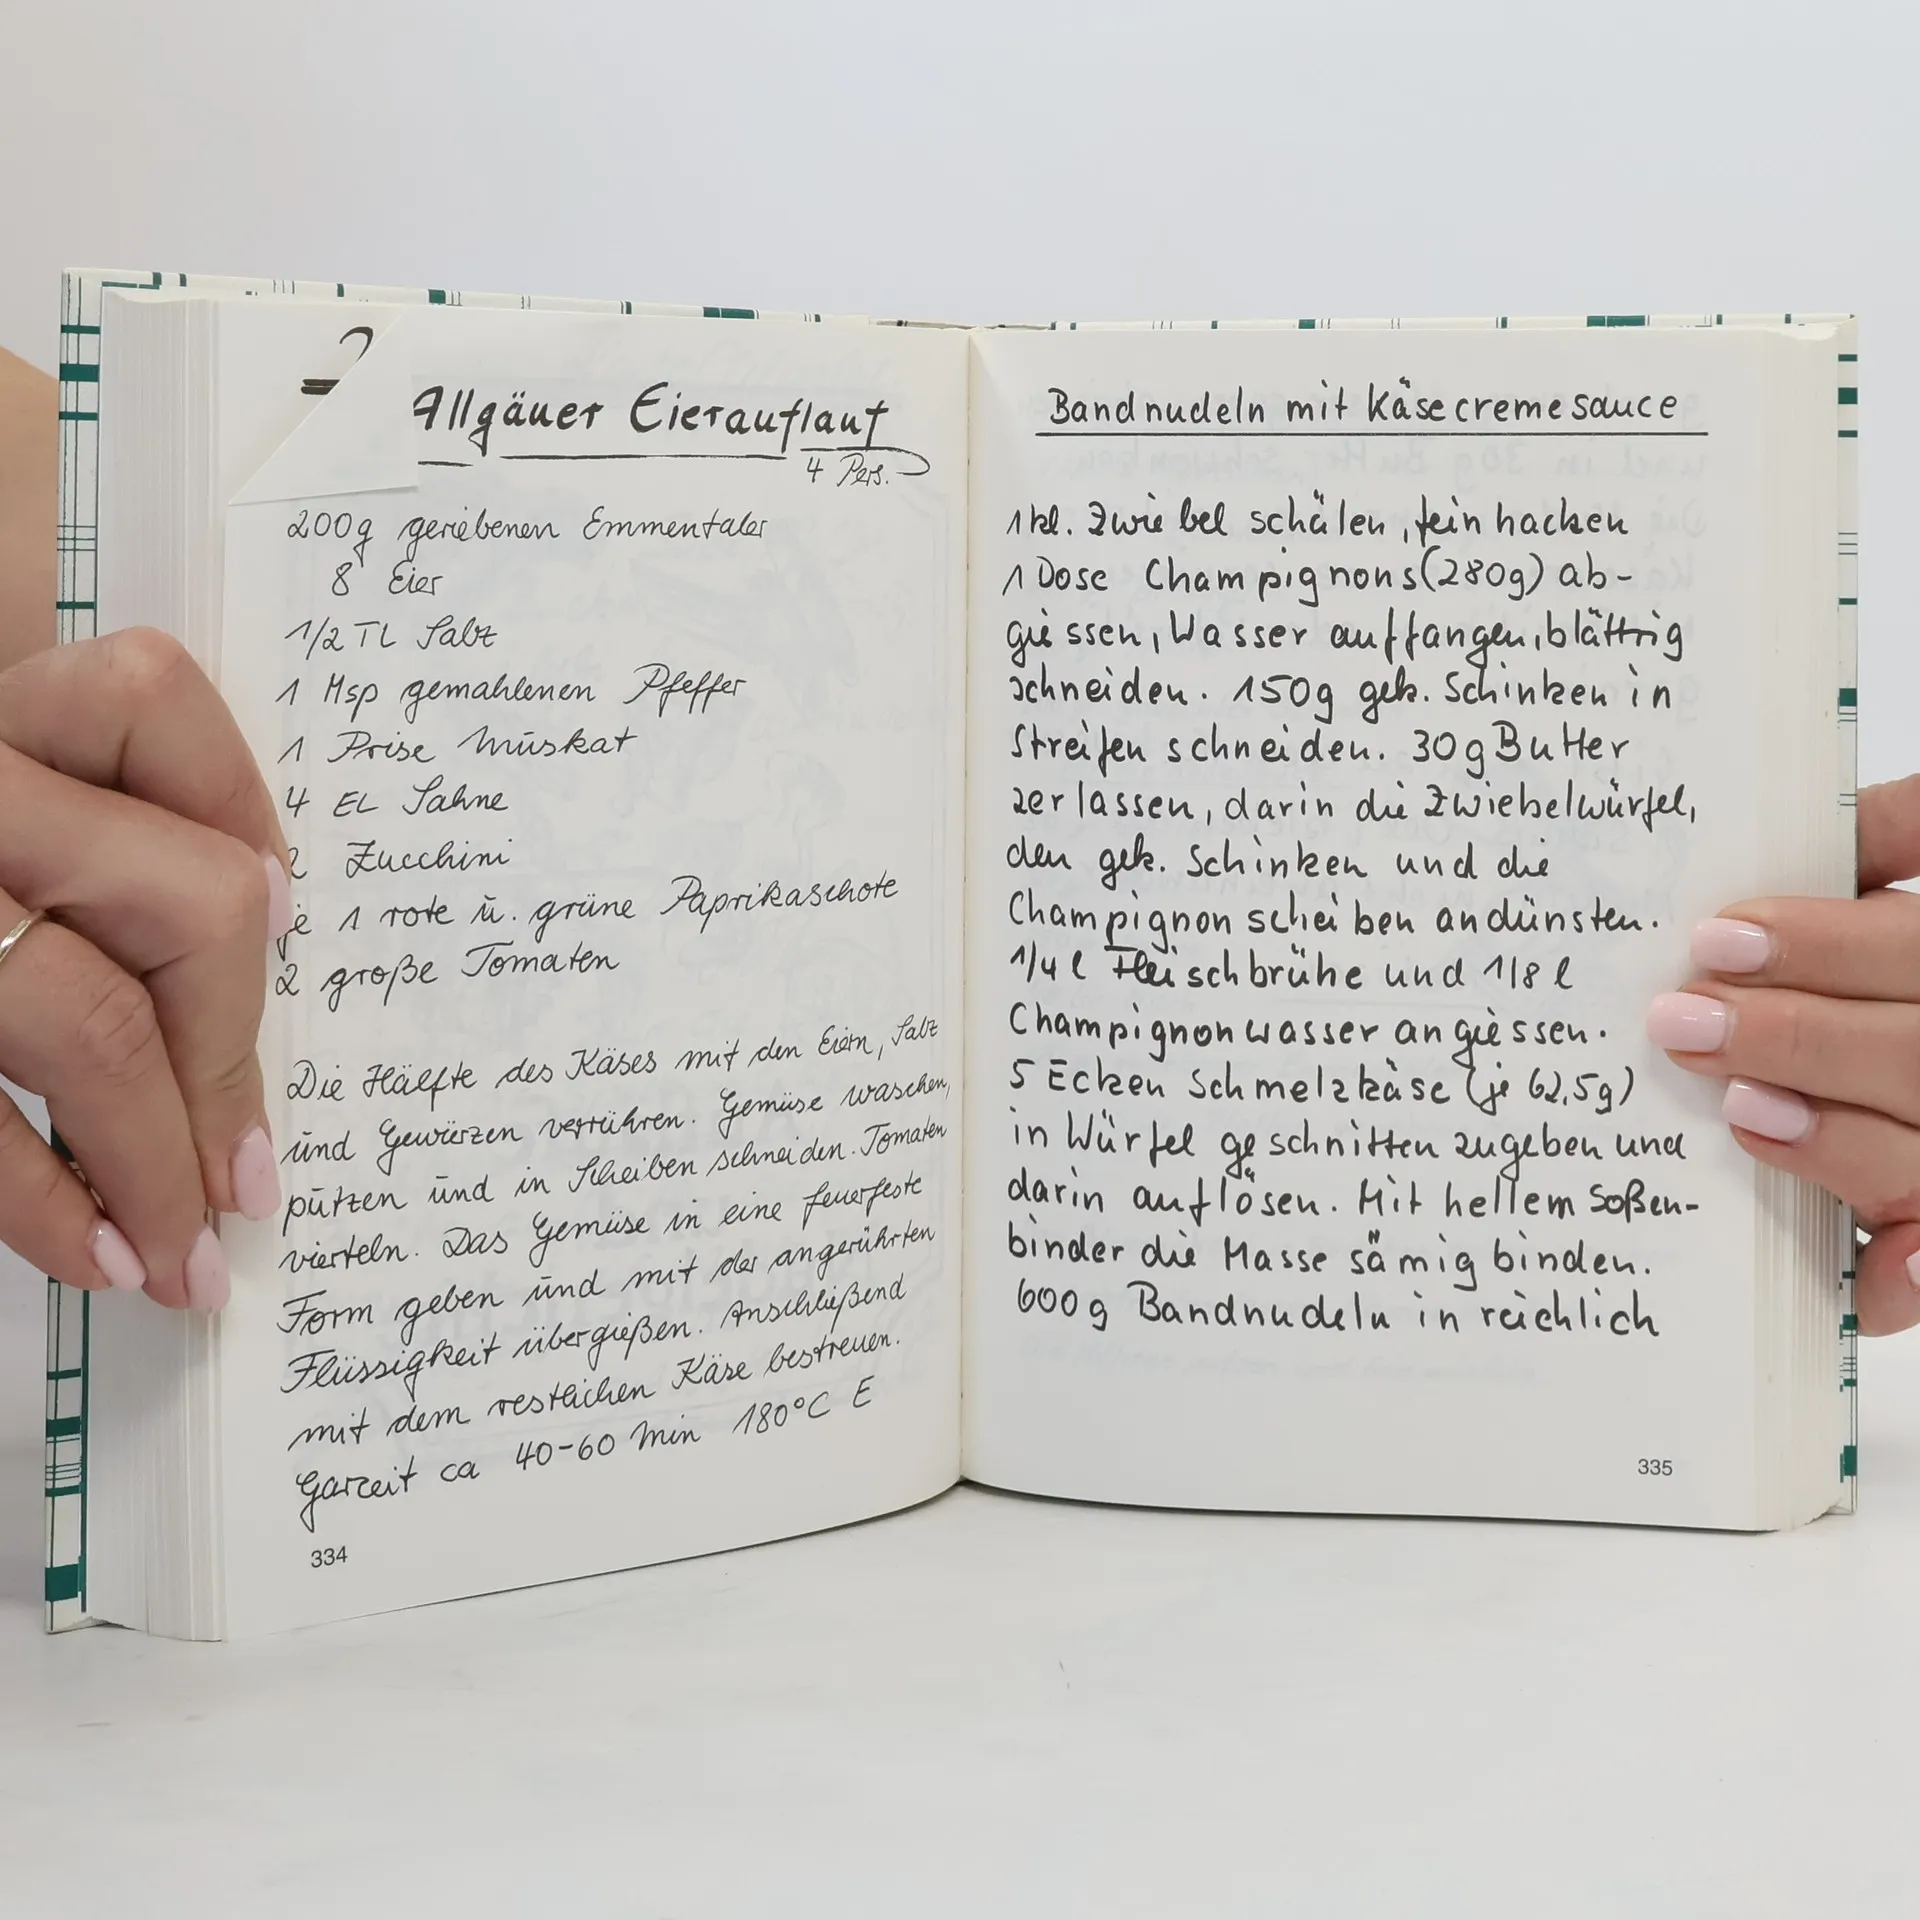 Allgäuer Eierauflauf
4 Pers.
200g geriebenen Emmentaler
8 Eier
1/2 TL Salz
1 Msp gemahlenen Pfeffer
1 Prise Muskat
4 EL Sahne
2 Zucchini
je 1 rote u. grüne Paprikaschote
2 große Tomaten
Die Hälfte des Käses mit den Eiern, Salz
und Gewürzen verrühren. Gemüse waschen,
putzen und in Scheiben schneiden. Tomaten
vierteln. Das Gemüse in eine feuerfeste
Form geben und mit der angerührten
Flüssigkeit übergießen. Anschließend
mit dem restlichen Käse bestreuen.
Garzeit ca 40-60 Min 180°C E
334
Bandnudeln mit Käsecremesauce
1 kl. Zwiebel schälen, fein hacken
1 Dose Champignons (280g) ab-
giessen, Wasser auffangen, blättrig
schneiden. 150g gek. Schinken in
Streifen schneiden. 30g Butter
zerlassen, darin die Zwiebelwürfel,
den gek. Schinken und die
Champignonscheiben andünsten.
1/4 l Fleischbrühe und 1/8 l
Champignonwasser angiessen.
5 Ecken Schmelzkäse (je 62,5g)
in Würfel geschnitten zugeben und
darin auflösen. Mit hellem Soßen-
binder die Masse sämig binden.
600g Bandnudeln in reichlich
335